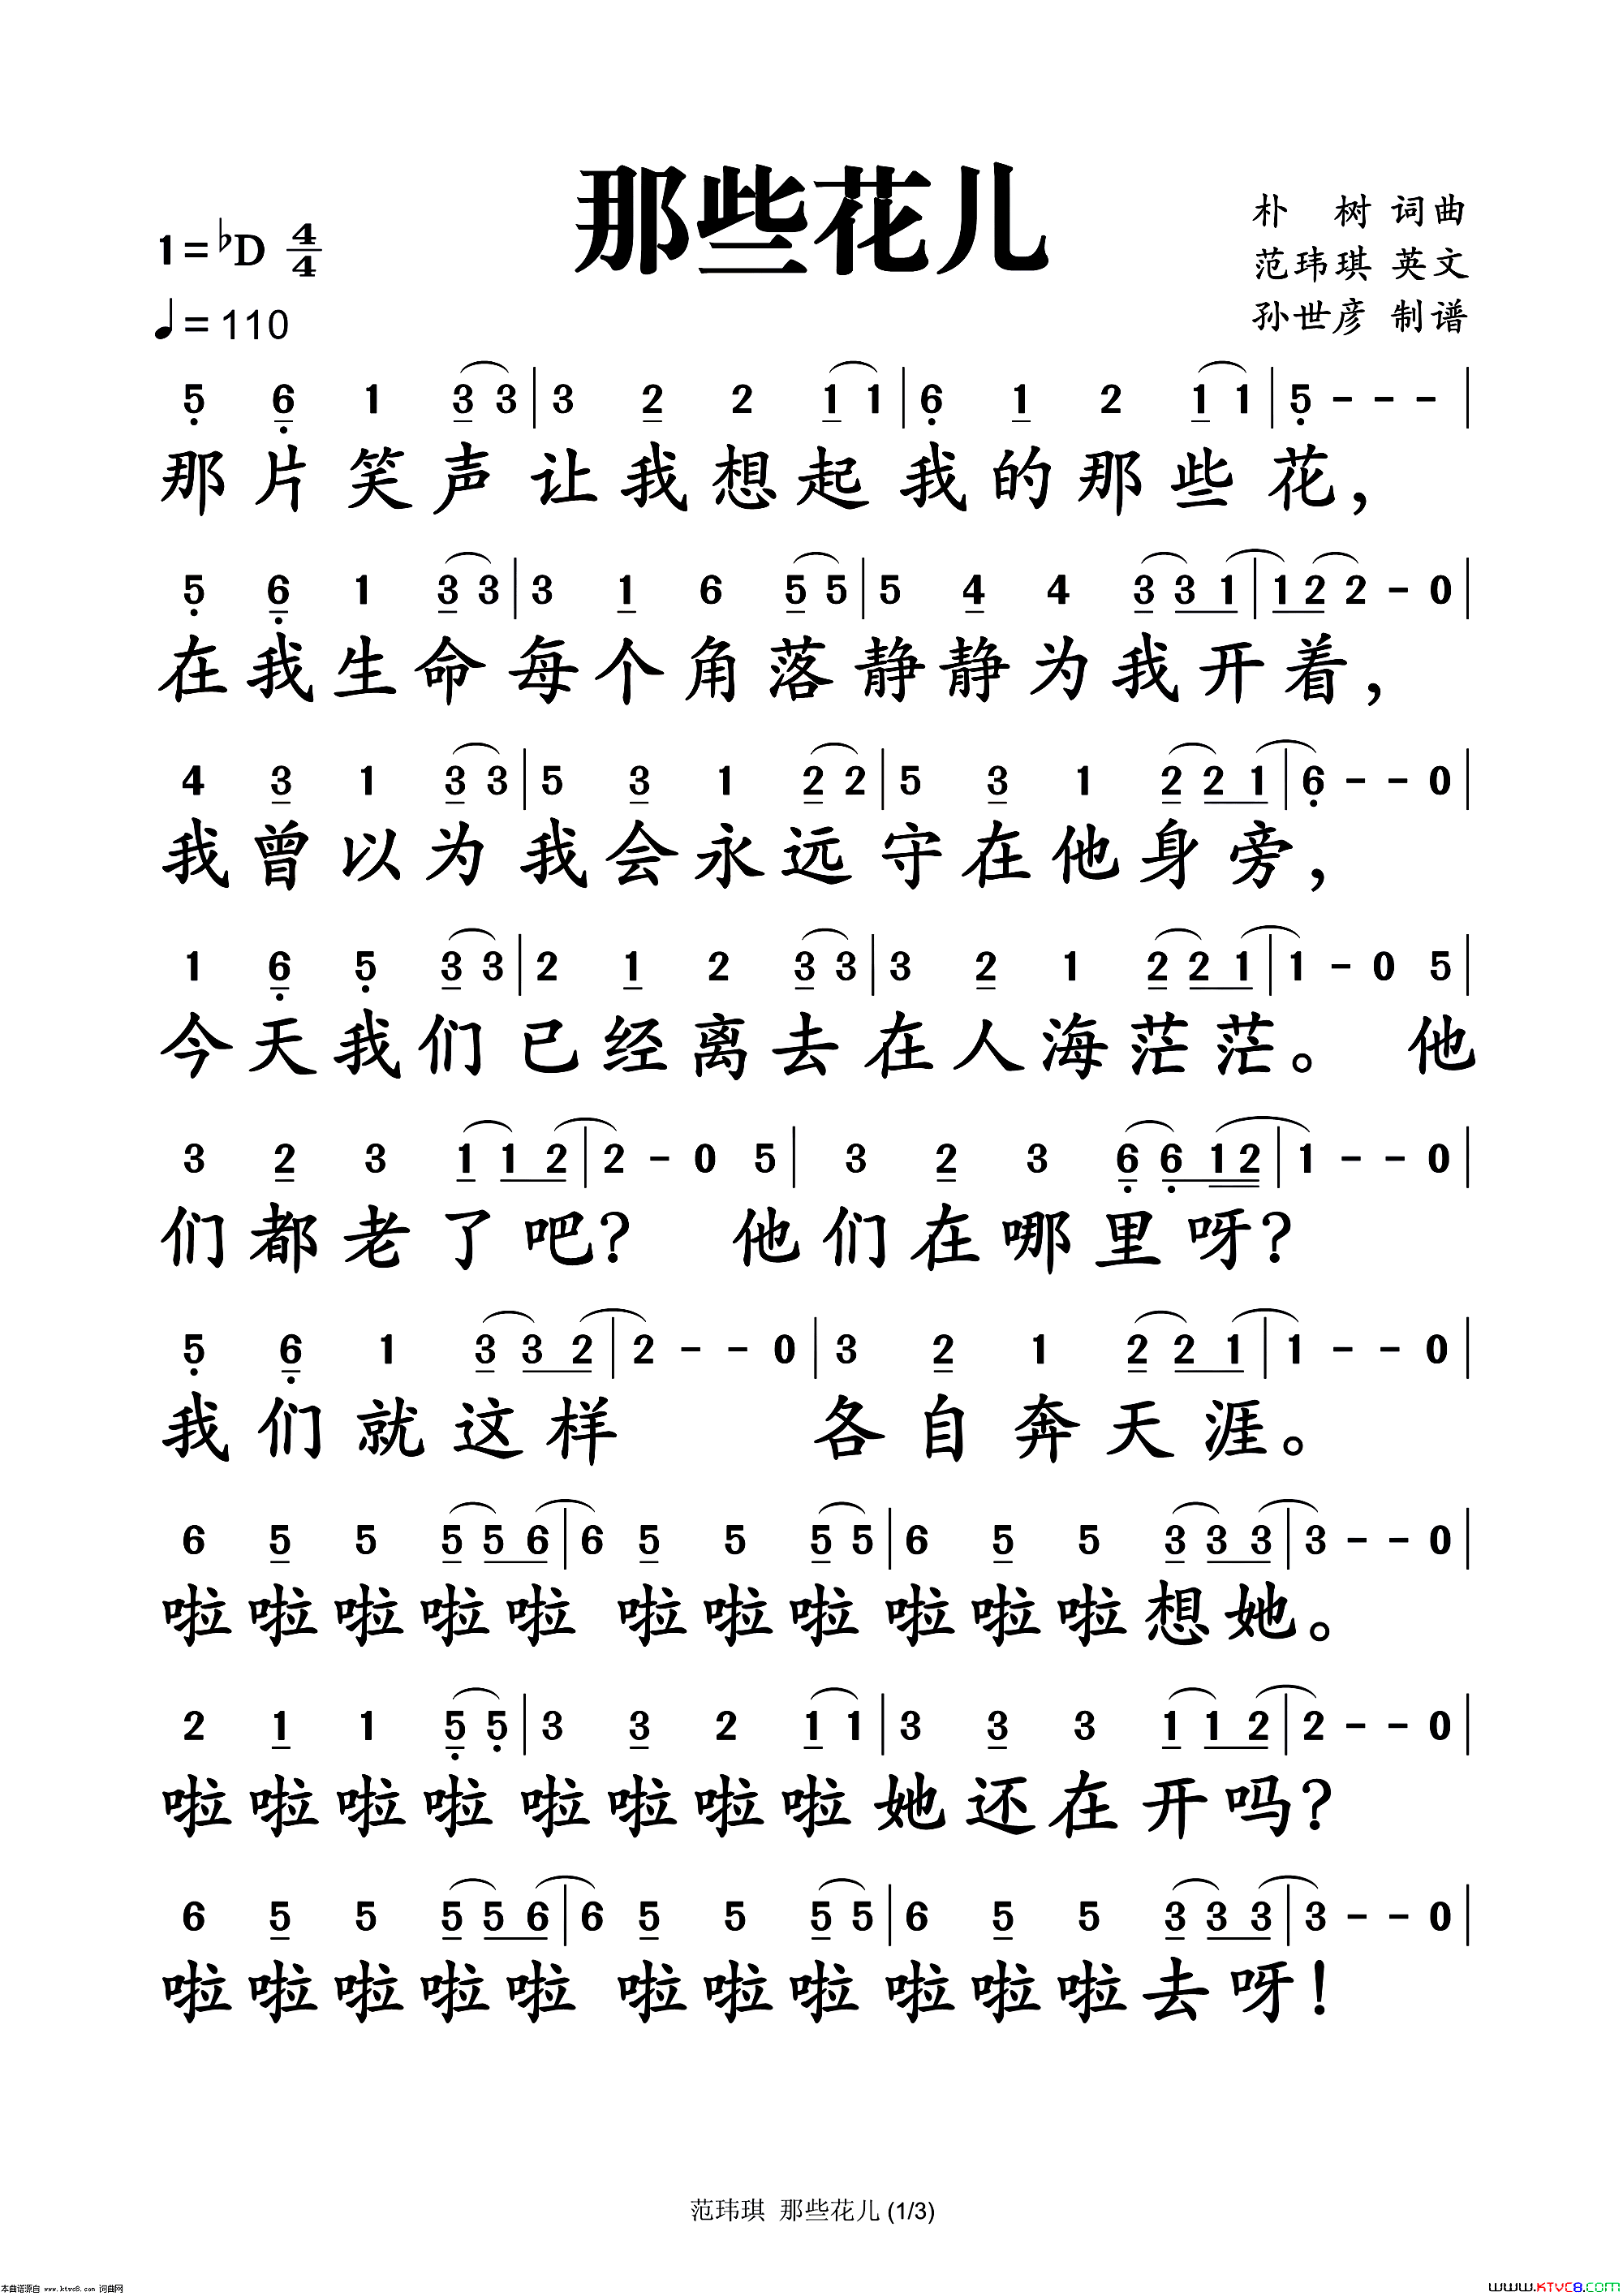 那些花儿
1=♭D 4/4
♩= 110
朴 树 词曲
范玮琪 英文
孙世彦 制谱
5̣ 6̣ 1 3 3 | 3 2 2 1 1 | 6̣ 1 2 1 1 | 5̣ - - - |
那片笑声让我想起我的那些花,
5̣ 6̣ 1 3 3 | 3 1 6 5 5 | 5 4 4 3 3 1 | 1 2 2 - 0 |
在我生命每个角落静静为我开着,
4 3 1 3 3 | 5 3 1 2 2 | 5 3 1 2 2 1 | 6̣ - - 0 |
我曾以为我会永远守在他身旁,
1 6̣ 5̣ 3 3 | 2 1 2 3 3 | 3 2 1 2 2 1 | 1 - 0 5 |
今天我们已经离去在人海茫茫。 他
3 2 3 1 1 2 | 2 - 0 5 | 3 2 3 6̣ 6̣ 1 2 | 1 - - 0 |
们都老了吧? 他们在哪里呀?
5̣ 6̣ 1 3 3 2 | 2 - - 0 | 3 2 1 2 2 1 | 1 - - 0 |
我们就这样 各自奔天涯。
6 5 5 5 5 6 | 6 5 5 5 5 | 6 5 5 3 3 3 | 3 - - 0 |
啦啦啦啦啦 啦啦啦 啦啦啦想她。
2 1 1 5̣ 5̣ | 3 3 2 1 1 | 3 3 3 1 1 2 | 2 - - 0 |
啦啦啦啦 啦啦啦啦她还在开吗?
6 5 5 5 5 6 | 6 5 5 5 5 | 6 5 5 3 3 3 | 3 - - 0 |
啦啦啦啦啦 啦啦啦 啦啦啦去呀!
范玮琪 那些花儿 (1/3)
本曲谱源自 www.ktvc8.com 词曲网
www.KTVC8.com